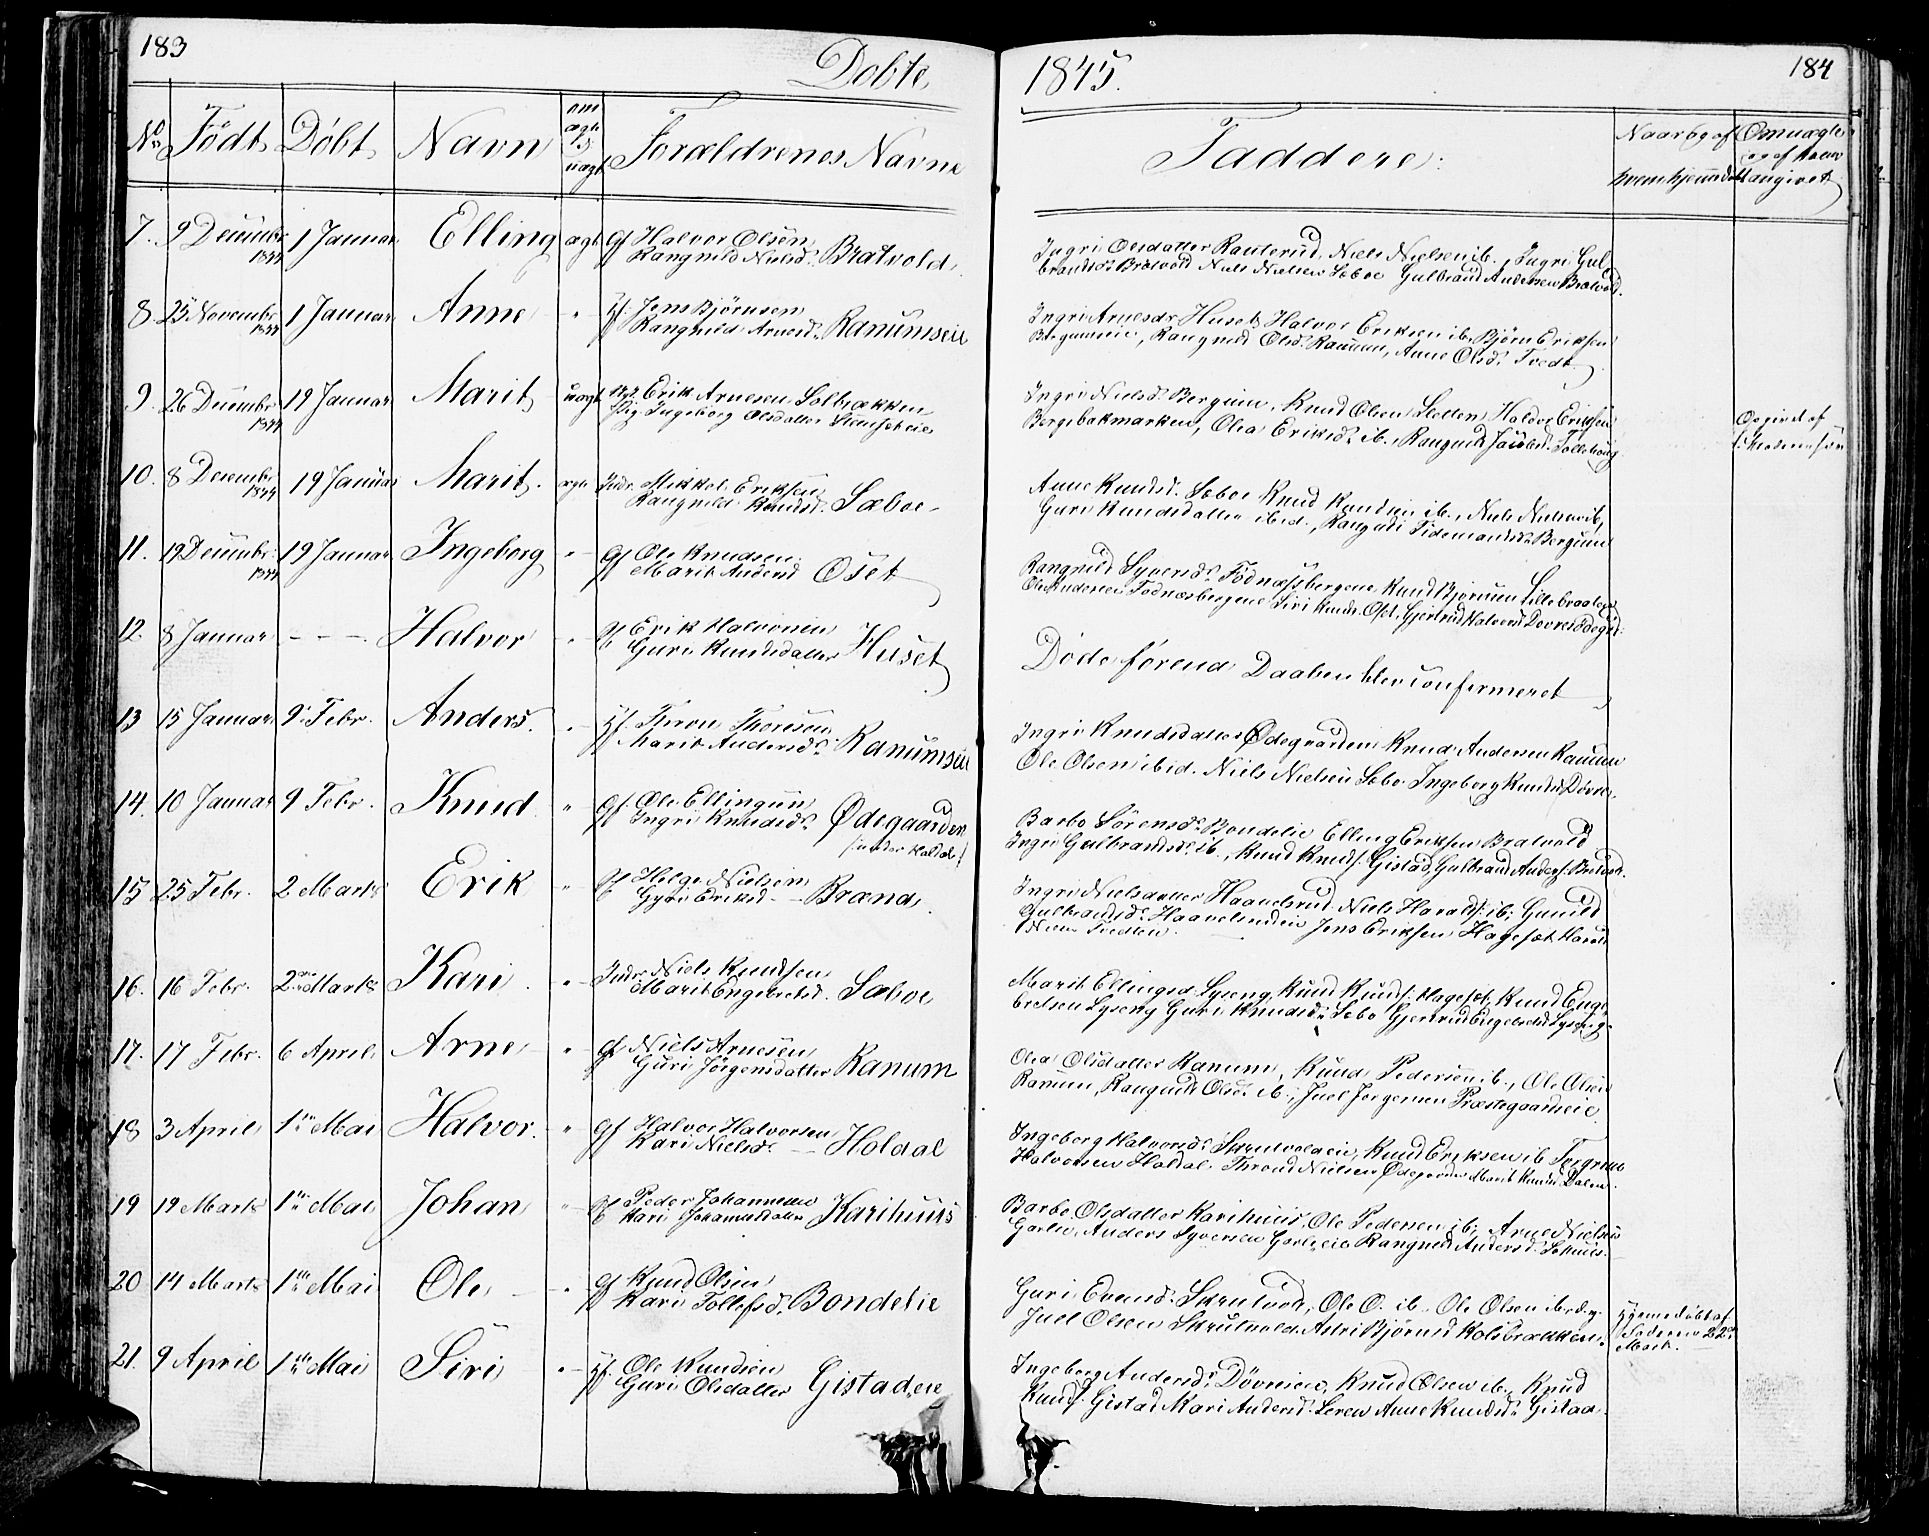 183
Døbte
No
Født
Døbt
Navn
om
ægte
uægt
Forældrenes Navne
7. 9 Decembr 1 Januar Elling ægt Gf Halvor Olsen
1844 Rangnild Nielsd. Bratvold
8. 25 Novembr 1 Januar Anne " Hf. Jens Bjørnsen
1844 Rangnild Arnesd. Ranumseie
9. 26 Decembr 19 Januar Marit uægt Erik Arnesen Solbrækken
1844 Pig. Ingeborg Olsdatter
10. 8 Decembr 19 Januar Marit ægte Indr. Mikkel Eriksen
1844 Rangnild Knudsd. Sæboe
11. 19 Decembr 19 Januar Ingeborg " Gf Ole Knudsen
1844 Marit Andersd Oset
12. 8 Januar - - - Halvor " Gf Erik Halvorsen
Guri Knudsdatter Huset
13 15 Januar 9 Febr. Anders. " Hf. Thron Thoresen
Marit Andersd. Ranumseie
14. 10 Januar 9 Febr. Knud " Gf. Ole Ellingsen
Ingri Knudsd. Ødegaarden
under Holdal
15 25 Febr. 2 Marts Erik " Gf Helge Nielsen
Gyri Eriksd. - Brænd
16. 16 Febr. 2den Marts Kari " Indr. Niels Knudsen
Marit Engebretsd. Sæboe
17. 17 Febr. 6 April Arne " Gf Niels Arnesen
Guri Jörgensdatter Ranum
18 3 April 1ste Mai Halvor. " Gf Halvor Halvorsen
Kari Nielsd. - Holdal
19 19 Marts 1ste Mai Johan " Gf Peder Johannesen
Kari Johannesdatter Karihuus
20 14 Marts 1ste Mai Ole " Gf Knud Olsen
Kari Tollefsd. Bondelie
21. 9 April 1ste Mai Siri " Hf. Ole Knudsen
Guri Olsdatter Gistadeie
1845.
184
Faddere.
Naar og af
hvem hjemmedøbt
Om uægte
og af hvem
angivet
Ingri Olsdatter Rauterud, Niels Nielsen ib., Ingri Gul-
brandsd. Bratvold Niels Nielsen Sæboe Gulbrand Andersen Bratvold.
Ingri Arnesdr Huset Halvor Eriksen ib. Bjørn Eriksen
Bergumeie, Rangnild Olsd. Ranum, Anne Olsd. Tvedt
Ingri Nielsd. Bergum, Knud Olsen Sletten, Halvor Eriksen
Bergsbakmarken, Olea Eriksd. ib. Rangnild Jacobsd.
Opgivet af
Anne Knudsd. Sæboe Knud Knudsen ib., Niels Nielsen ib,
Guri Knudsdatter ibid., Rangdi Tidemandsd. Bergum
Rangnild Syversd. Fødnæsbergene Knud Bjørnsen Lillebraaten
Ole Andersen Fodnæsbergene Siri Knudsd. Oset, Gjertrud Halvorsd.
Døde førend Daaben blev confirmeret
Ingri Knudsdatter Ødegaarden Knud Andersen Ranum
Ole Olsen ibid. Niels Nielsen Sæbo Ingeborg Knudsd. Døvre.
Barbo Sørensd. Bondelie Elling Eriksen Bratvold
Ingri Gulbrandsd. ib., Knud Knuds. Gistad, Gulbrand Anders. Bratvold.
Ingri Nielsdatter Haavelsrud Niels Haralds. ib. Gunild
Gulbrandsd. Haavelsrudeie Jens Eriksen Hageset Harald
Nielsen Tvedten.
Marit Ellingsd. Lyseng, Knud Knuds. Hageset, Knud Enge-
bretsen Lyseng Guri Knudsd. Sæbo Gjertrud Engebretsd. Lyseng.
Olea Olsdatter Ranum, Knud Pedersen ib., Ole Olsen
Ranum, Rangnild Olsd. ib., Juel Jørgensen Præstegaardseie
Ingeborg Halvorsd. Skrutvoldeie, Knud Eriksen ib.
Halvorsen Holdal Thrond Nielsen Ødegaarden Marit Knudsd. Dalen.
Barbo Olsdatter Karihuus, Ole Pedersen ib, Arne Nielsen
Garlie, Anders Syversen Garlieeie Rangnild Andersd.
Guri Evensd. Skrutvold, Ole O. ib. Ole Olsen ib.
Juel Olsen Skrutvold Astri Bjørnsd Kolsbrækken.
Hjemmedøbt af
Faderen 22
Mart.
Ingeborg Andersd. Døvreeie, Knud Olsen ib. Knud
Knuds. Gistad Mari Andersd. Anne Knudsd. Gistad